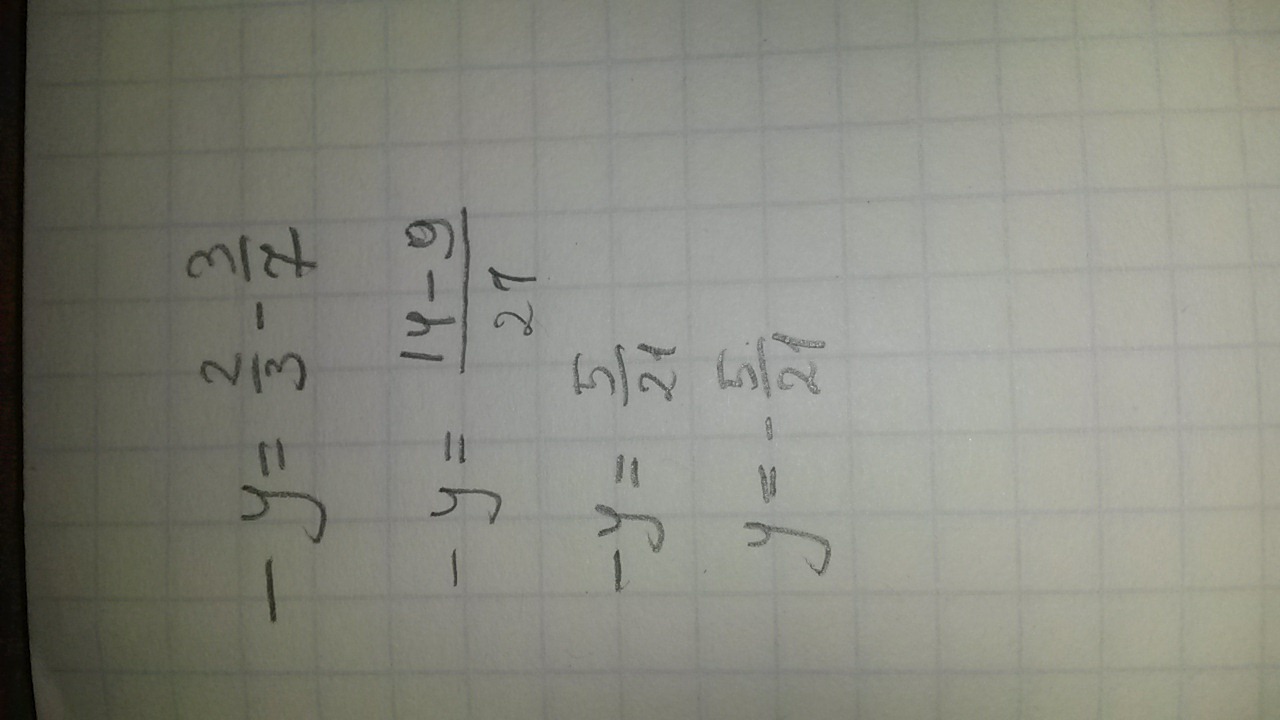 -y = 2/3 - 3/7
-y = (14 - 9)/21
-y = 5/21
y = -5/21